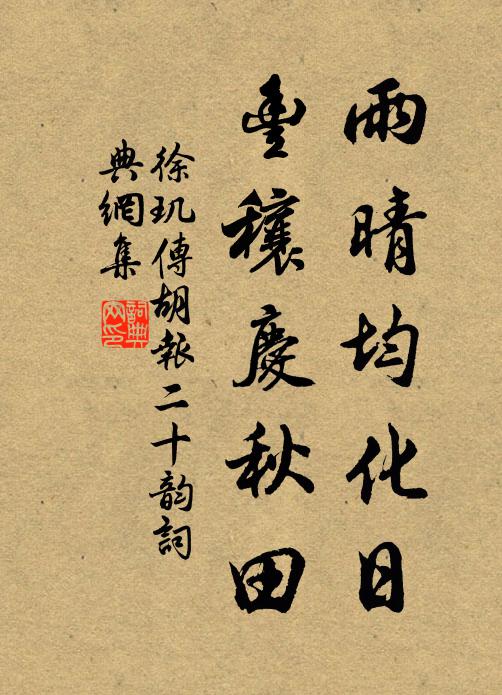 雨晴均化日
豊穰慶秋田
徐玑傳胡報二十韵詞
典網集
詞典
网印